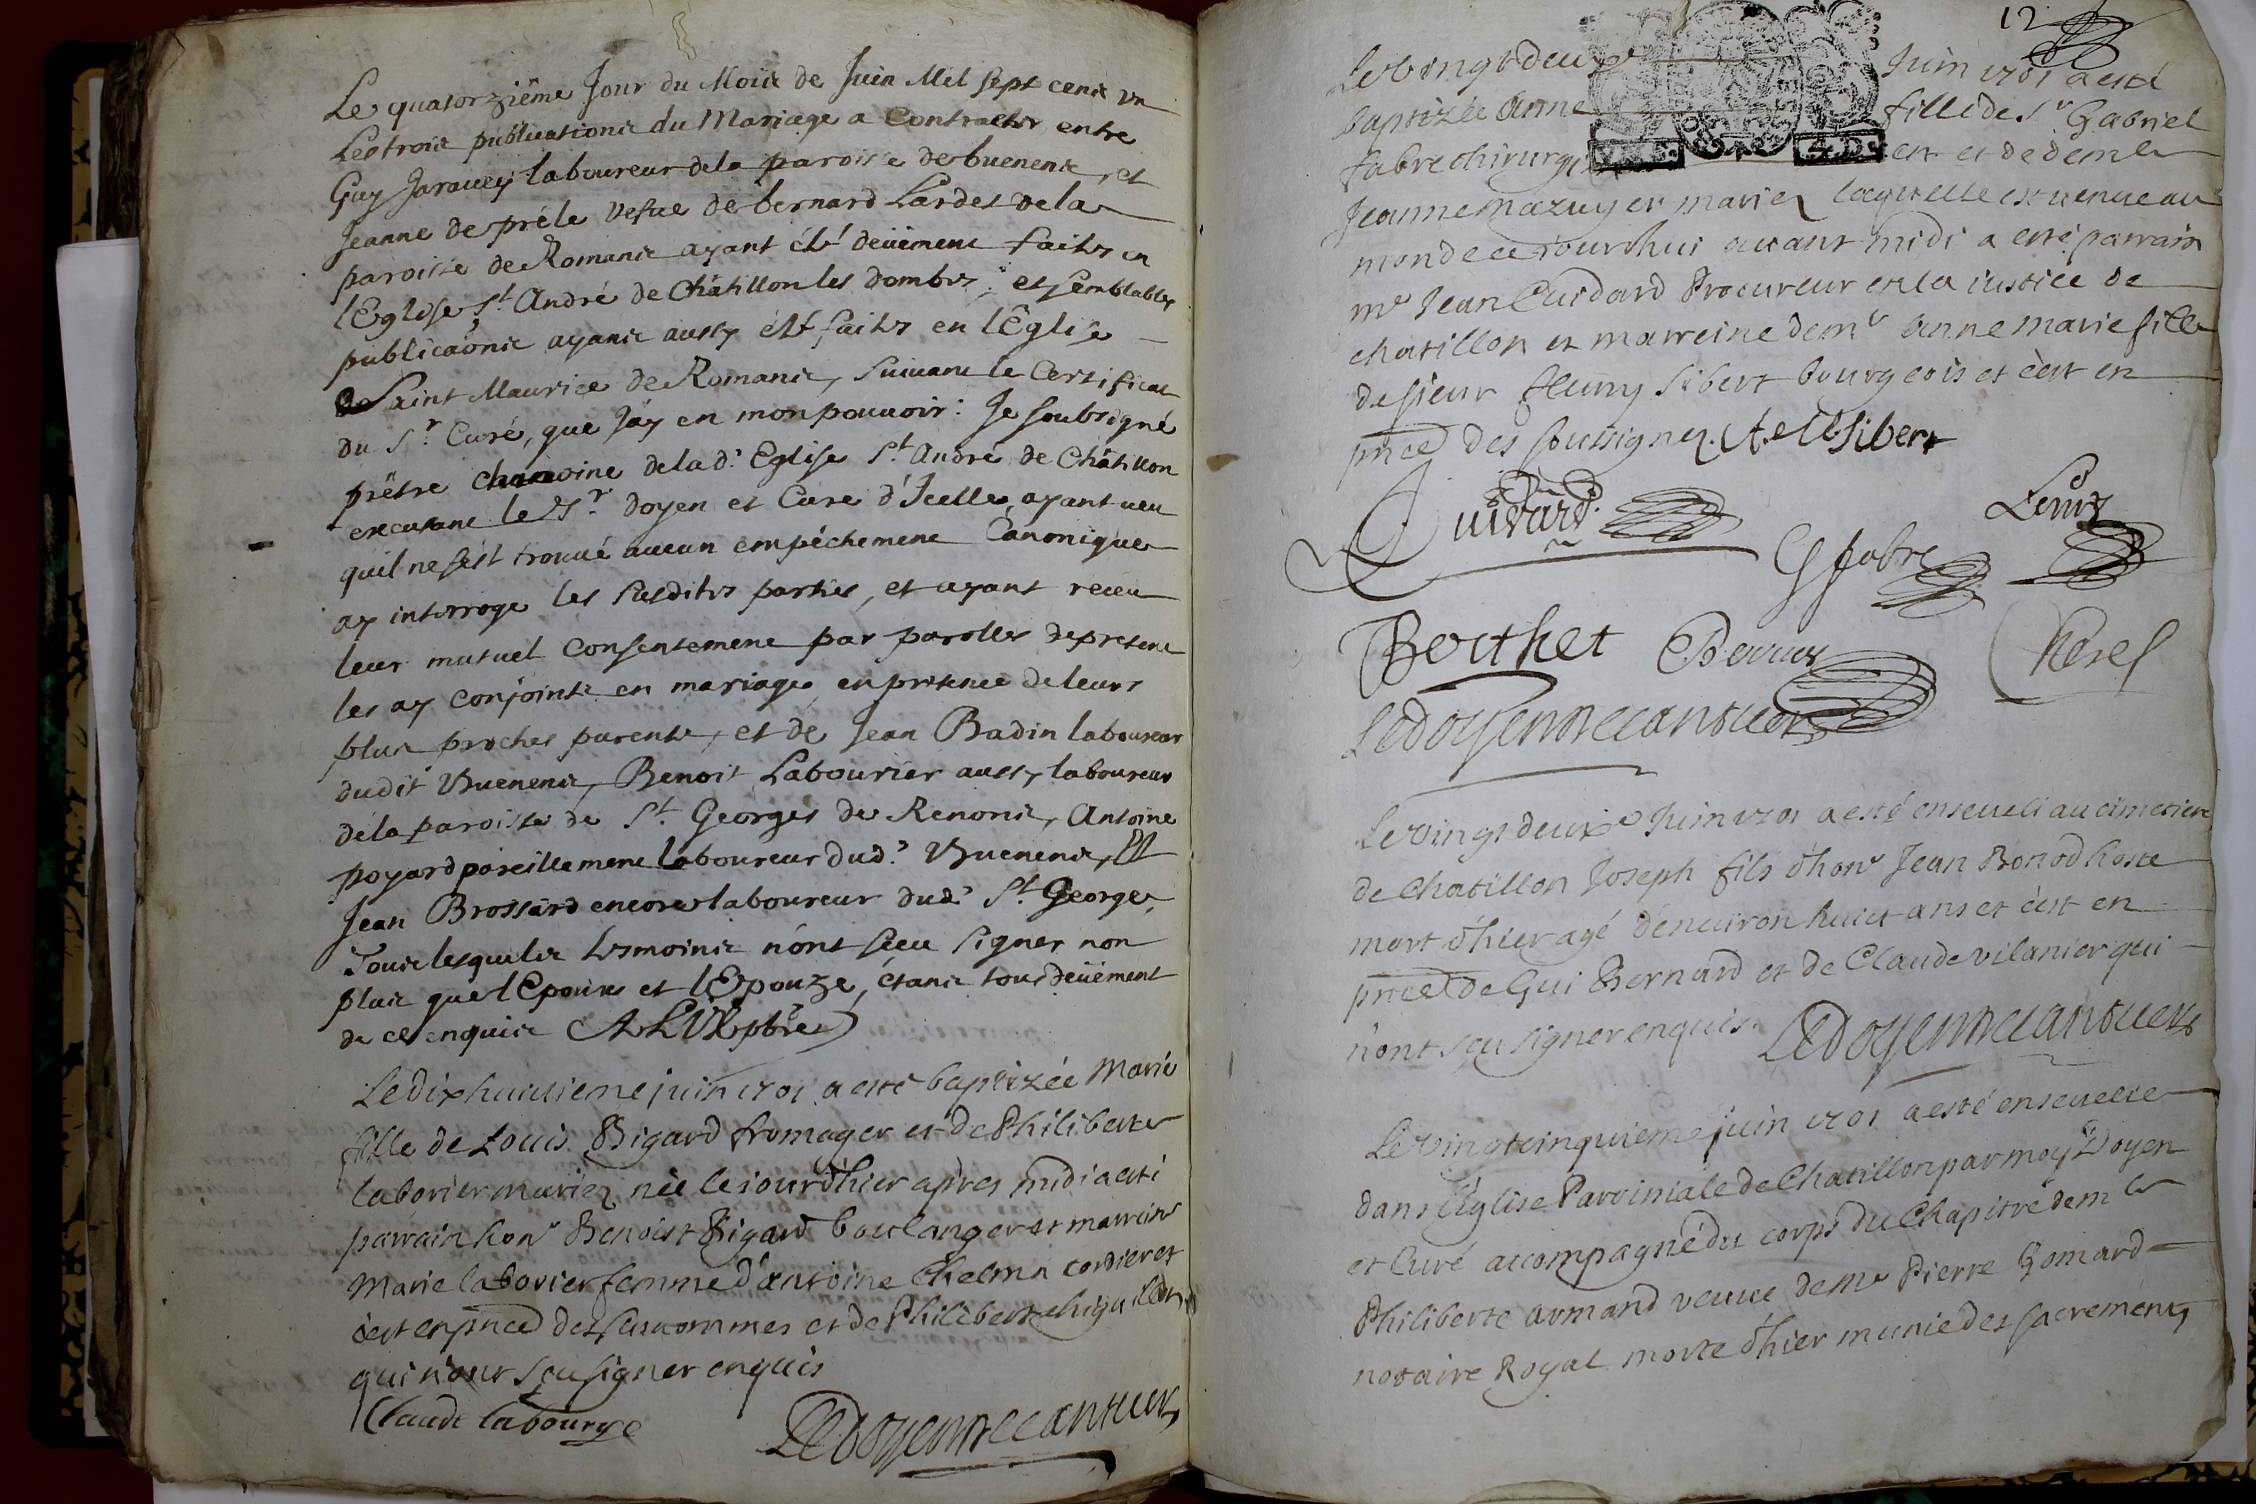 Le quatorziême Jour du Mois de Juin Mil sept cens un
Les trois publications du Mariage a Contracter entre
Guy Jaravey laboureur dela paroisse de buenens, et
Jeanne de préle vefue de bernard Lardet dela
paroisse de Romans ayant été deüement faites en
l'Eglise St. André de Châtillon les dombes; et semblables
publicaõns ayans aussy été faites en l'Eglise
de Saint Maurice de Romans, suivant le Certificat
du Sr. Curé, que J'ay en mon pouvoir: Je soubsigné
prêtre chanoine de lad.' Eglise St. André de Châtillon
en excusant le Sr. doyen et Curé d'Icelle, ayant veu
quil ne s'est trouvé aucun empêchement Canonique
ay interrogé les susdites parties, et ayant receu
leur mutuel Consentement par parolles de present
les ay conjoints en mariage, en presence de leurs
plus proches parents, et de Jean Badin laboureur
dudit Buenens, Benoit Labourier aussy laboureur
déla paroisse de St. Georges de Renons, Antoine
poyard pareillement laboureur dud.' Buenens, Et
Jean Brossard encore laboureur dud.' St. George,
Tous lesquels tesmoins n'ont sceu signer non
plus que l'Epoux et l'Epouze, étans tous deüement
de ce enquis
Le dix huitieme juin 1701 a esté baptizée Marie
fille de Louis Bigard fromager et de Philiberte
laborier mariez née le jour d'hier apres midi a esté
parrain hon^e Benoist Bigard boulanger et marreine
Marie laborier femme d'antoine Chelmn cordier et
c'est en pñce des susnommes et de Philibert
qui n'ont sçu signer enquis
Claude labourye
12
Le vingt deux^e Juin 1701 a esté
baptizée Anne fille de S^r Gabriel
fabre chirurgi et de dem^lle
Jeanne mazuyer mariez laquelle est venue au
monde ce jourdhui avant midi a esté parrain
m^e Jean Cuidard Procureur en la justice de
chatillon et marreine dem^le Anne marie fille
de sieur fleury Sibert bourgeois et c'est en
pñce des soussignez. Sibert
Cuidard
G fabre
Berthet
Perel
Le vingt deux^e Juin 1701 a esté enseveli au cimetiere
de Chatillon Joseph fils d'hon^e Jean Bonod hoste
mort d'hier agé d'environ huict ans et c'est en
pñce de Gui Bernard et de Claude vilanier qui
n'ont sçu signer enquis.
Le vingt cinquieme juin 1701 a esté ensevelie
dans l'Eglise Parroissiale de Chatillon par moy Doyen
et Curé accompagné du corps du Chapitre dem^lle
Philiberte armand veuve de M^e Pierre Gomard
notaire Royal morte d'hier munie des sacrements